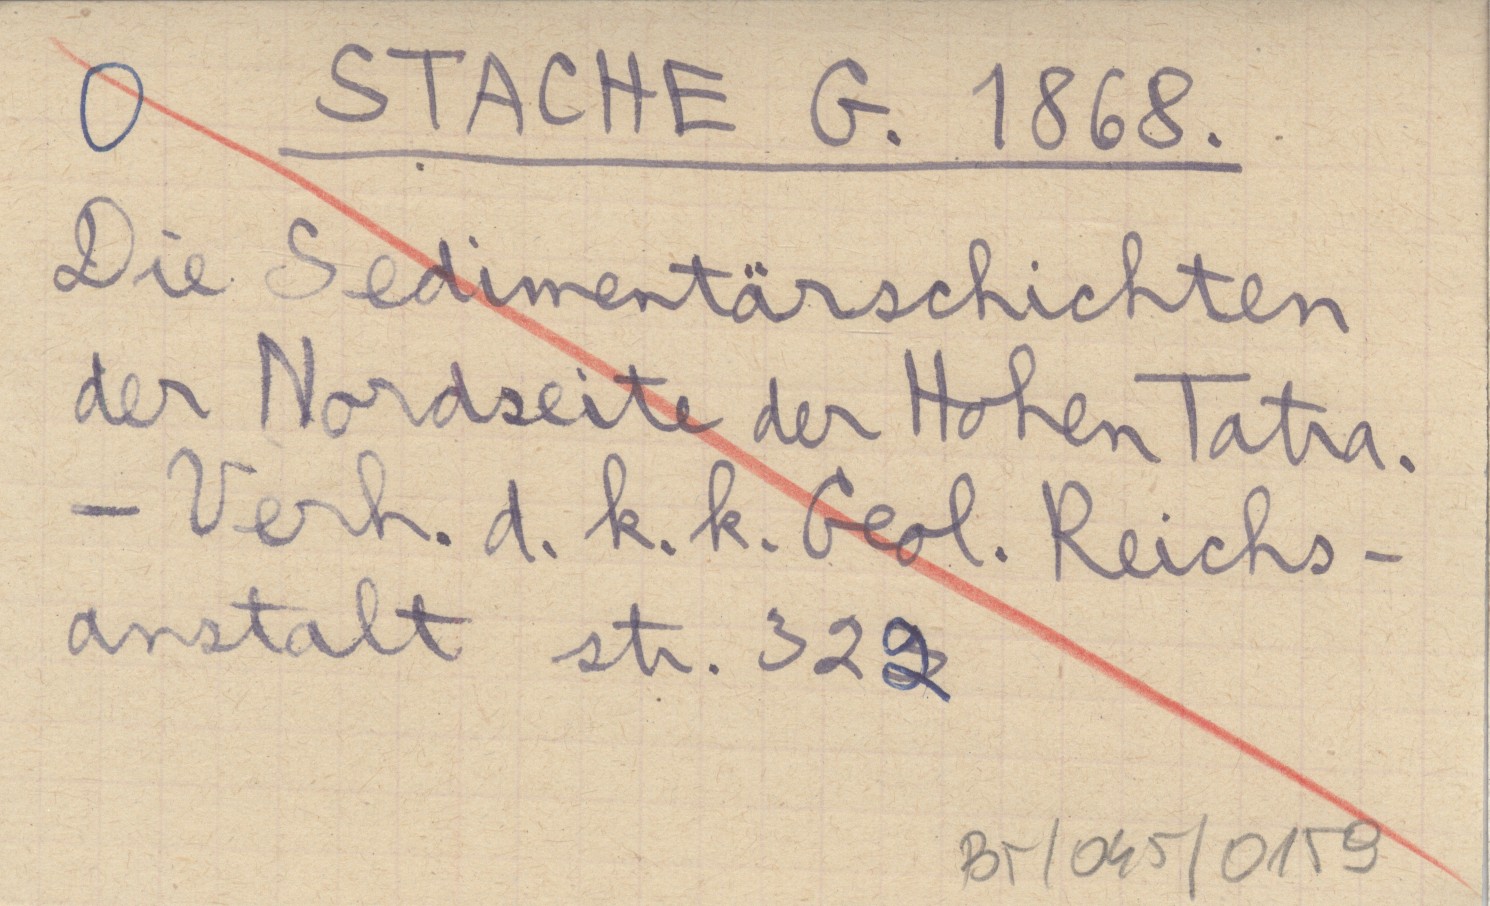 0 STACHE G. 1868.
Die Sedimentärschichten
der Nordseite der Hohen Tatra.
- Verh. d. k. k. Geol. Reichs-
anstalt str. 322
BT/045/0159